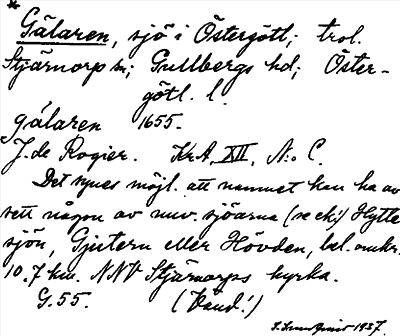 *
Gälaren, sjö i Östergötl; trol.
Stjärnorp sn; Gullbergs hd; Öster-
götl. l.
Gälaren 1655.
J. de Rogier. KrA, XII, N:o C.
Det synes möjl. att namnet kan ha av
sett någon av nuv. sjöarna (se ek!) Hytte
sjön, Gjutern eller Hövden, bel. omkr.
10.7 km. NNV Stjärnorps kyrka.
G.55. (Vand!)
1937.